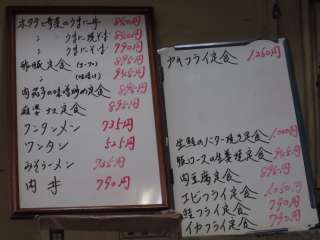 ホタテと青菜のうま煮丼 840円
〃 〃 うま煮焼そば 840円
〃 〃 うま煮そば 790円
酢豚定食 895円
〃 945円
肉茄子の味噌炒め定食 895円
麻婆ナス定食 895円
ワンタンメン 735円
ワンタン 525円
みそラーメン 735円
肉丼 790円
カキフライ定食 1,260円
生鮭のバター焼き定食 1,000円
豚ロースの生姜焼定食 945円
肉豆腐定食 840円
エビフライ定食 1,050円
鮭フライ定食 790円
イカフライ定食 790円